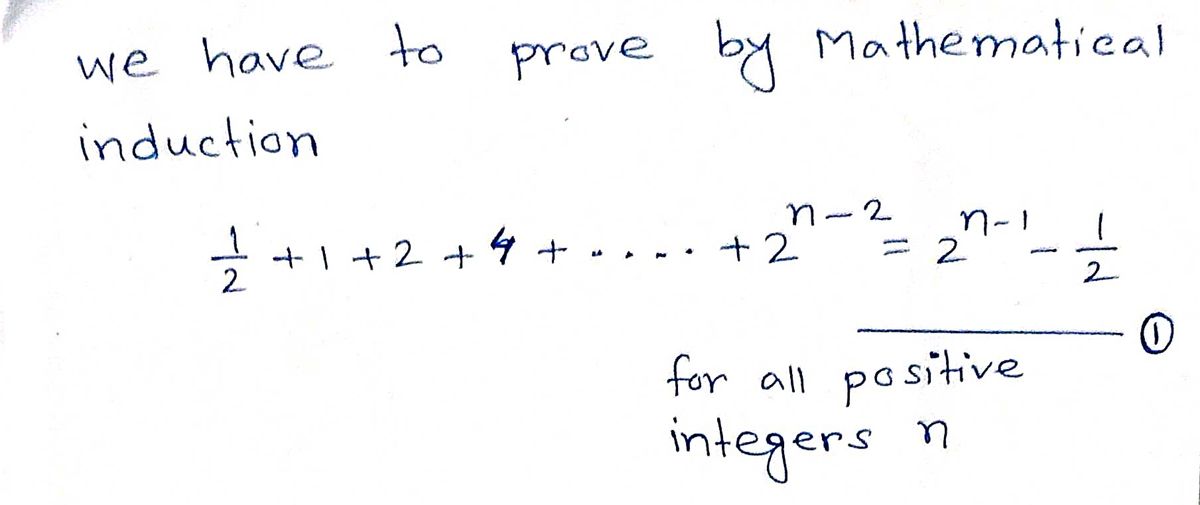 we have to prove by Mathematical
induction
1/2 + 1 + 2 + 4 + ..... + 2^{n-2} = 2^{n-1} - 1/2
①
for all positive
integers n